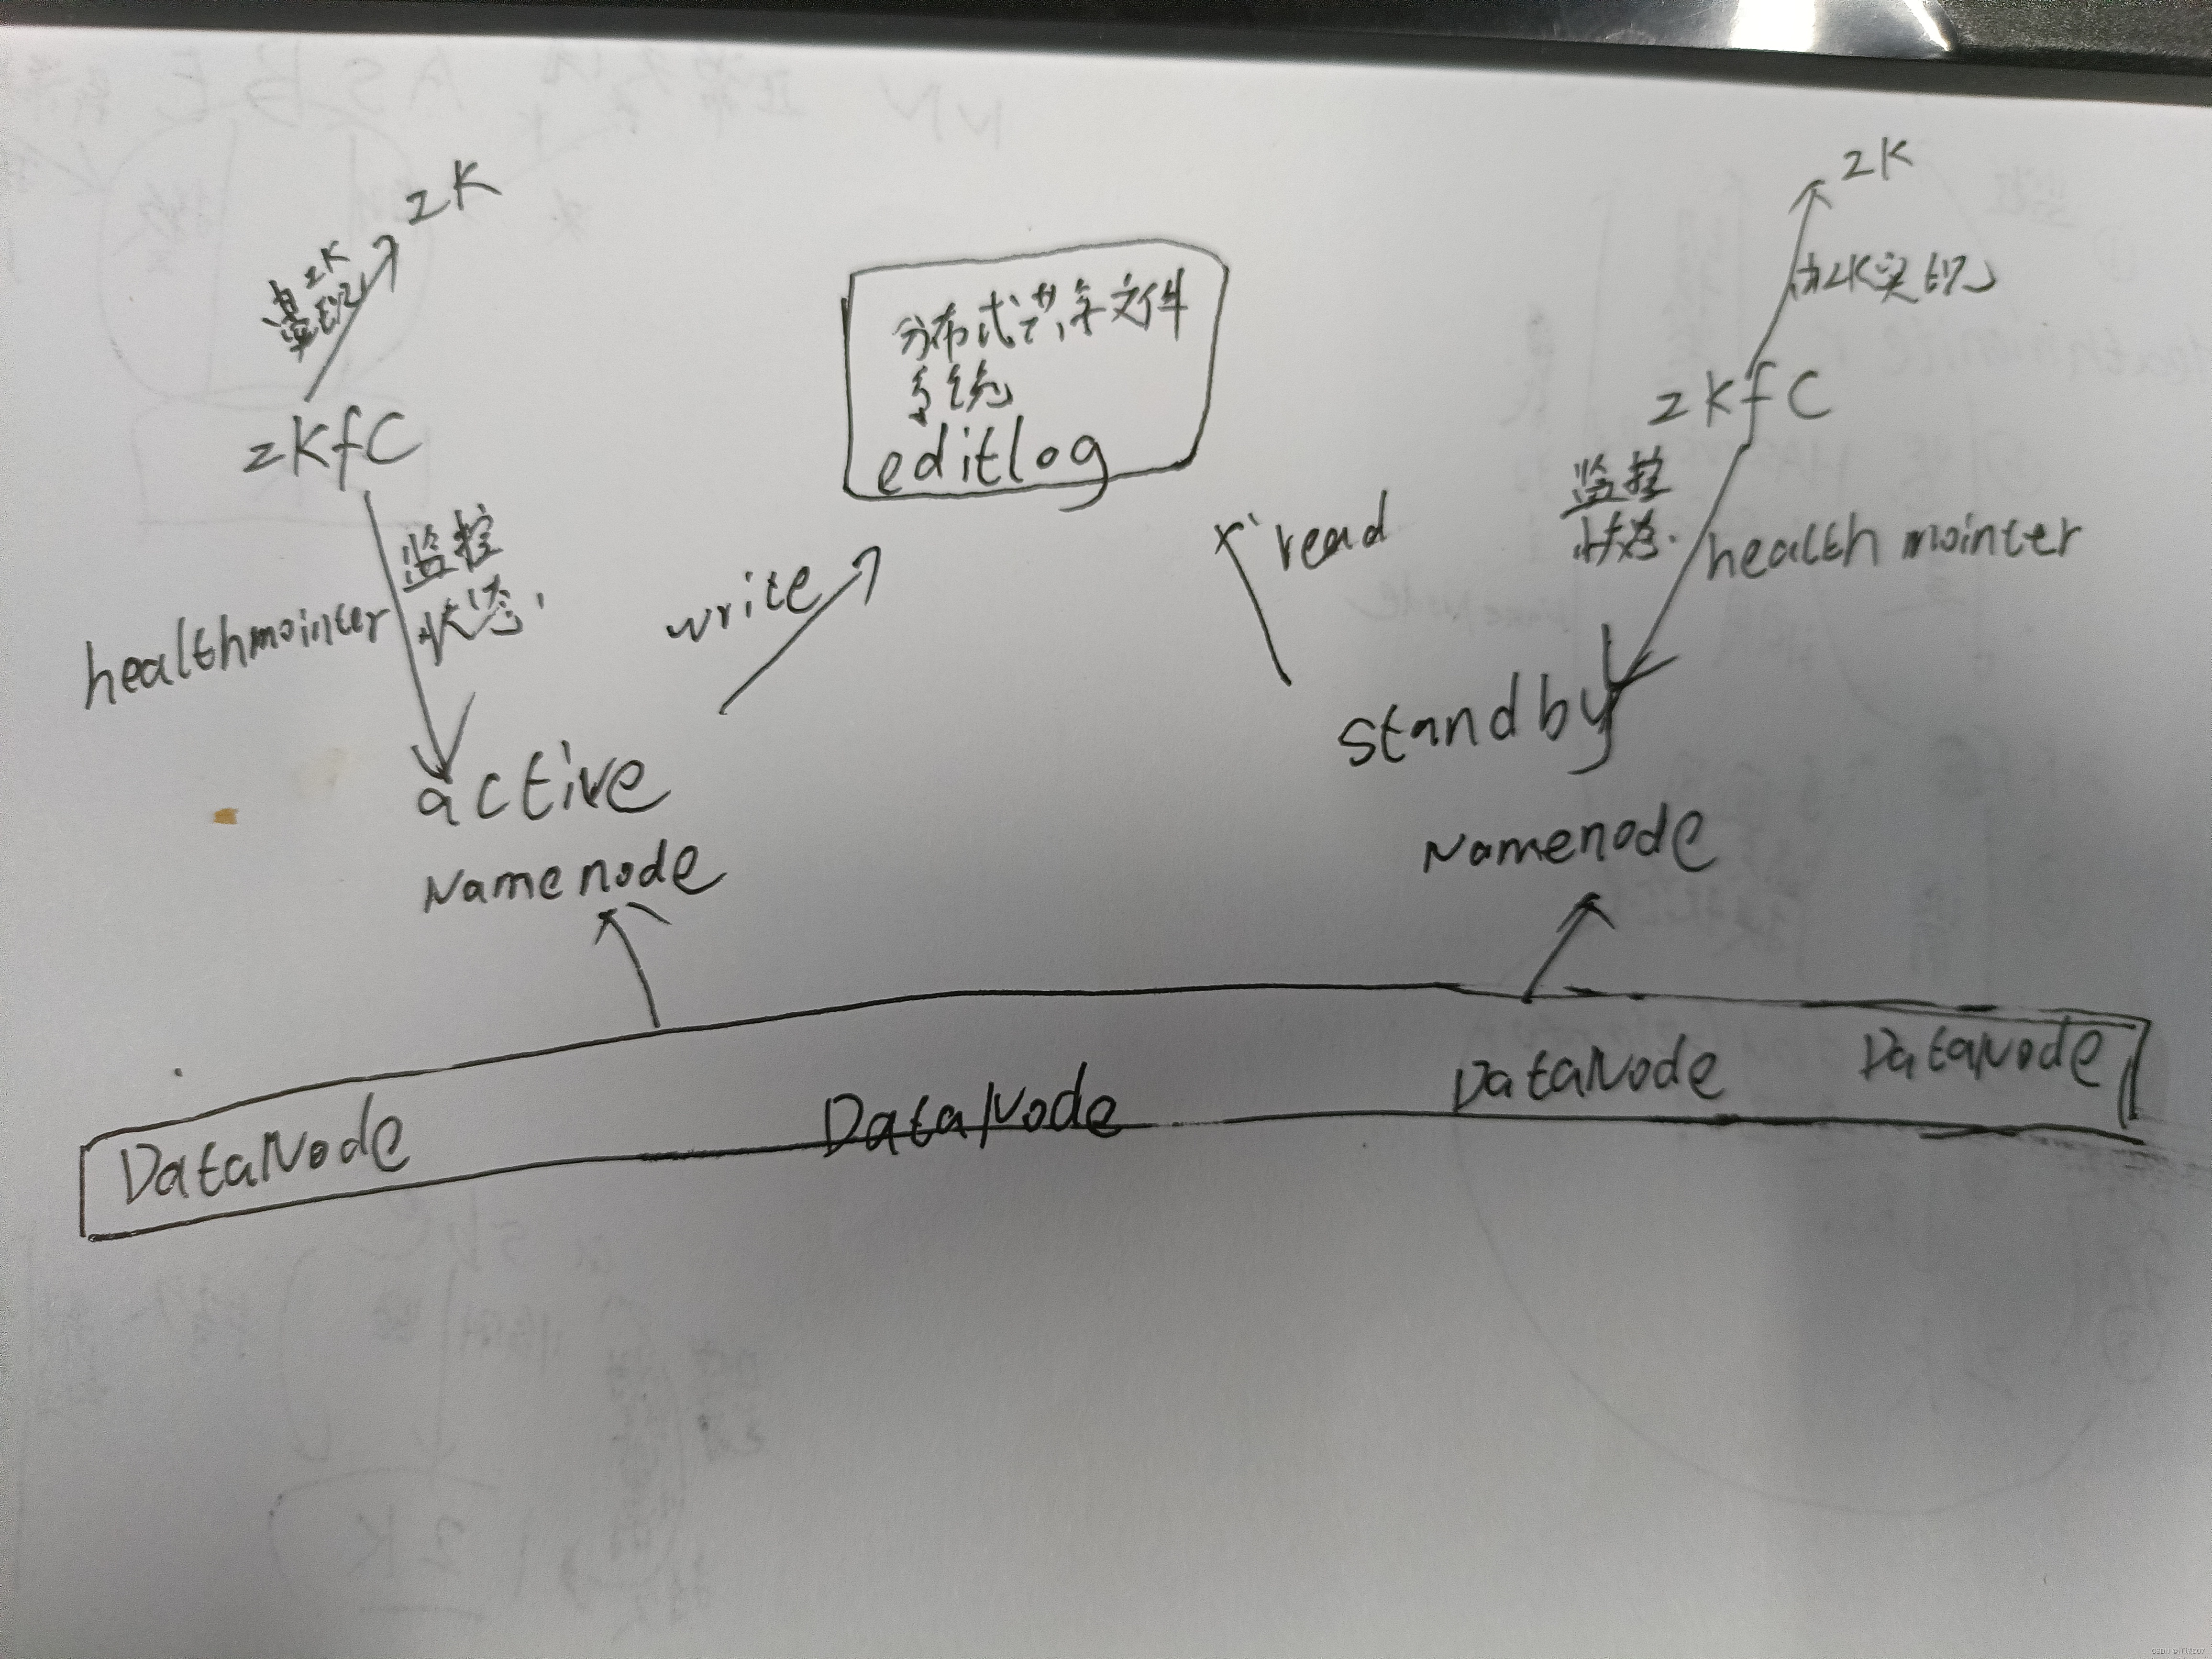 ZK
ZK
由ZK实现
ZKfC
分布式共享文件
系统
editlog
ZKfC
监控
状态
healthmointer
write
read
监控
状态
health mointer
active
Namenode
standby
Namenode
DataNode
DataNode
DataNode
DataNode